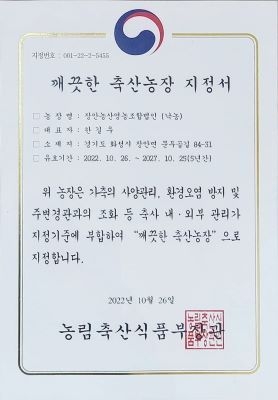 지정번호 : 001-22-2-5455
깨끗한 축산농장 지정서
□ 농 장 명 : 장안농산영농조합법인 (낙농)
□ 대 표 자 : 한 길 우
□ 소 재 지 : 경기도 화성시 장안면 문두곡길 84-31
□ 유효기간 : 2022. 10. 26. ~ 2027. 10. 25(5년간)
위 농장은 가축의 사양관리, 환경오염 방지 및
주변경관과의 조화 등 축사 내·외부 관리가
지정기준에 부합하여 "깨끗한 축산농장" 으로
지정합니다.
2022년 10월 26일
농림축산식품부장관